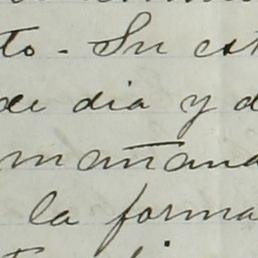 to - Su est
de dia y d
mañana
la forma